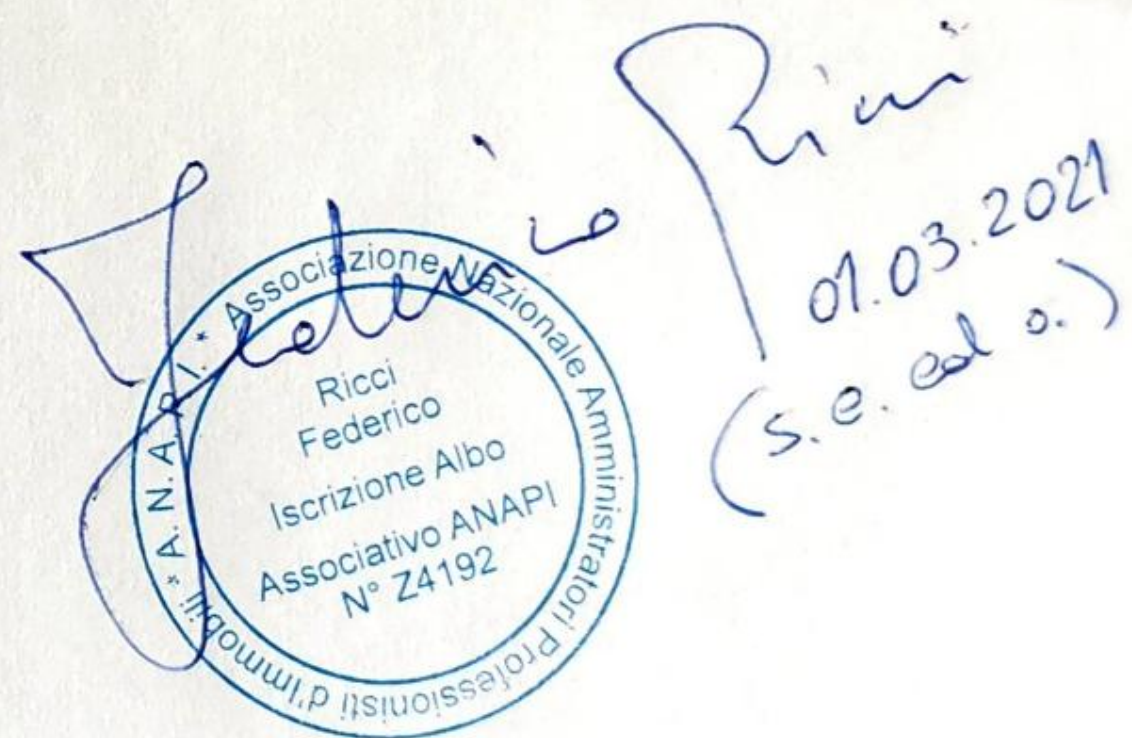 Federico Ricci
01.03.2021
(s.e. ed o.)
* A.N.A.P.I. * Associazione Nazionale Amministratori Professionisti d'Immobili
Ricci
Federico
Iscrizione Albo
Associativo ANAPI
N° Z4192